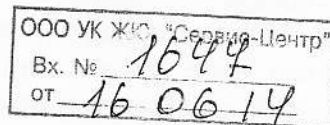 ООО УК ЖКО "Сервис-Центр"
Вх. № 1647
от 16 06 14